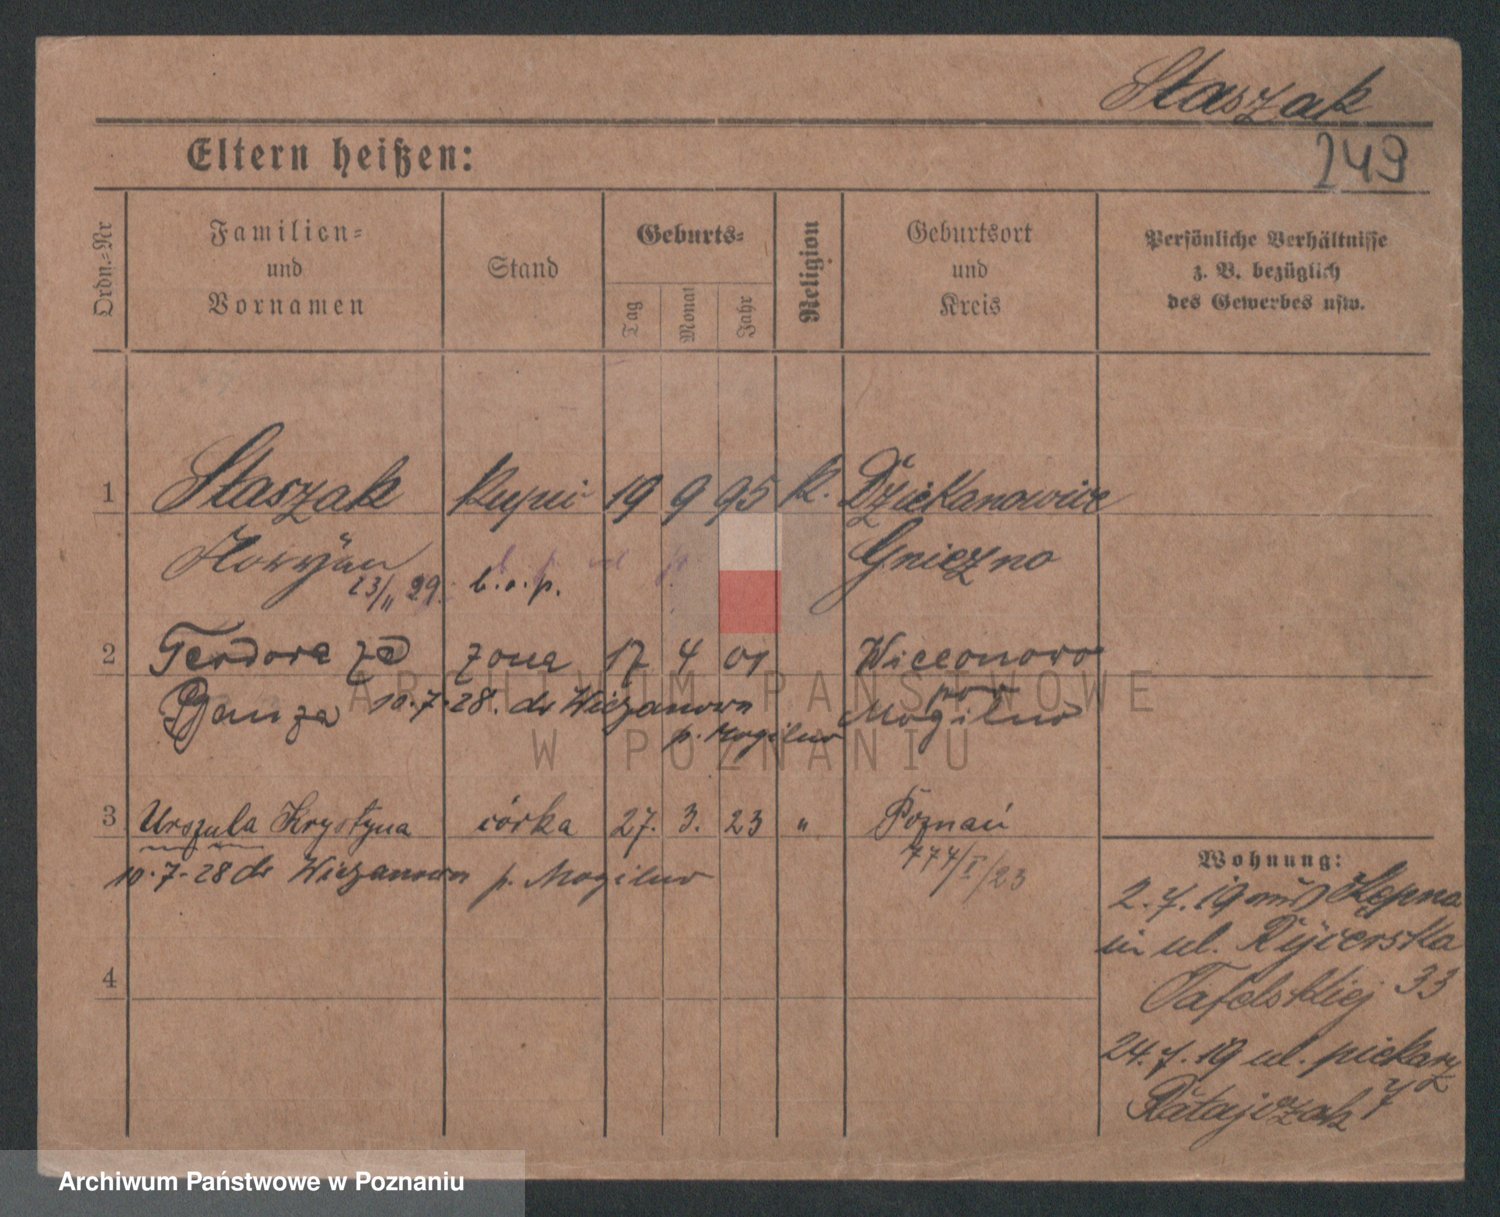 Staszak
249
Eltern heißen:
Ordn.-Nr
Familien-
und
Vornamen
Stand
Geburts-
Tag
Monat
Jahr
Religion
Geburtsort
und
Kreis
Persönliche Verhältnisse
z. B. bezüglich
des Gewerbes usw.
1 Staszak 19 9 95 K. Dziekanowice
Gniezno
23/11 29. b. o. p.
2 Teodora żona 17 4 01
10.7.28. do Wiczanowo
p. Mogilno Mogilno
3 Urszula Krystyna córka 27. 3. 23 " Poznań
774/I/23
10.7.28 do Wiczanowo p. Mogilno
4
Wohnung:
2.7.19 Kępna
ul. Rycerska
33
24.7.19 ul. piekary
Ratajczak 7
ARCHIWUM PAŃSTWOWE
W POZNANIU
Archiwum Państwowe w Poznaniu